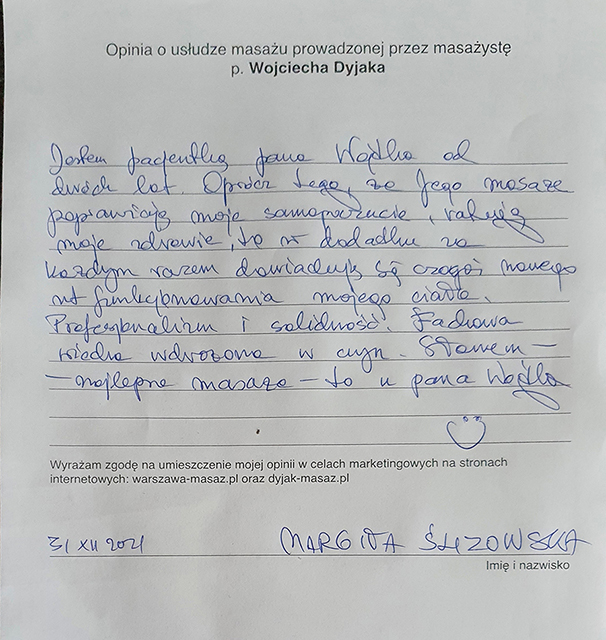 Opinia o usłudze masażu prowadzonej przez masażystę
p. Wojciecha Dyjaka
Jestem pacjentką pana Wojtka od
dwóch lat. Oprócz tego, że Jego masaże
poprawiają moje samopoczucie, ratują
moje zdrowie, to w dodatku za
każdym razem dowiaduję się czegoś nowego
nt funkcjonowania mojego ciała.
Profesjonalizm i solidność. Fachowa
wiedza wdrożona w czyn. Słowem –
– najlepsze masaże – to u pana Wojtka
Wyrażam zgodę na umieszczenie mojej opinii w celach marketingowych na stronach
internetowych: warszawa-masaz.pl oraz dyjak-masaz.pl
31 XII 2021
Imię i nazwisko